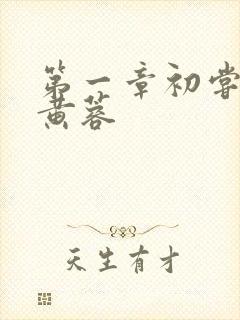 第一章初尝
黄蓉
天生有才